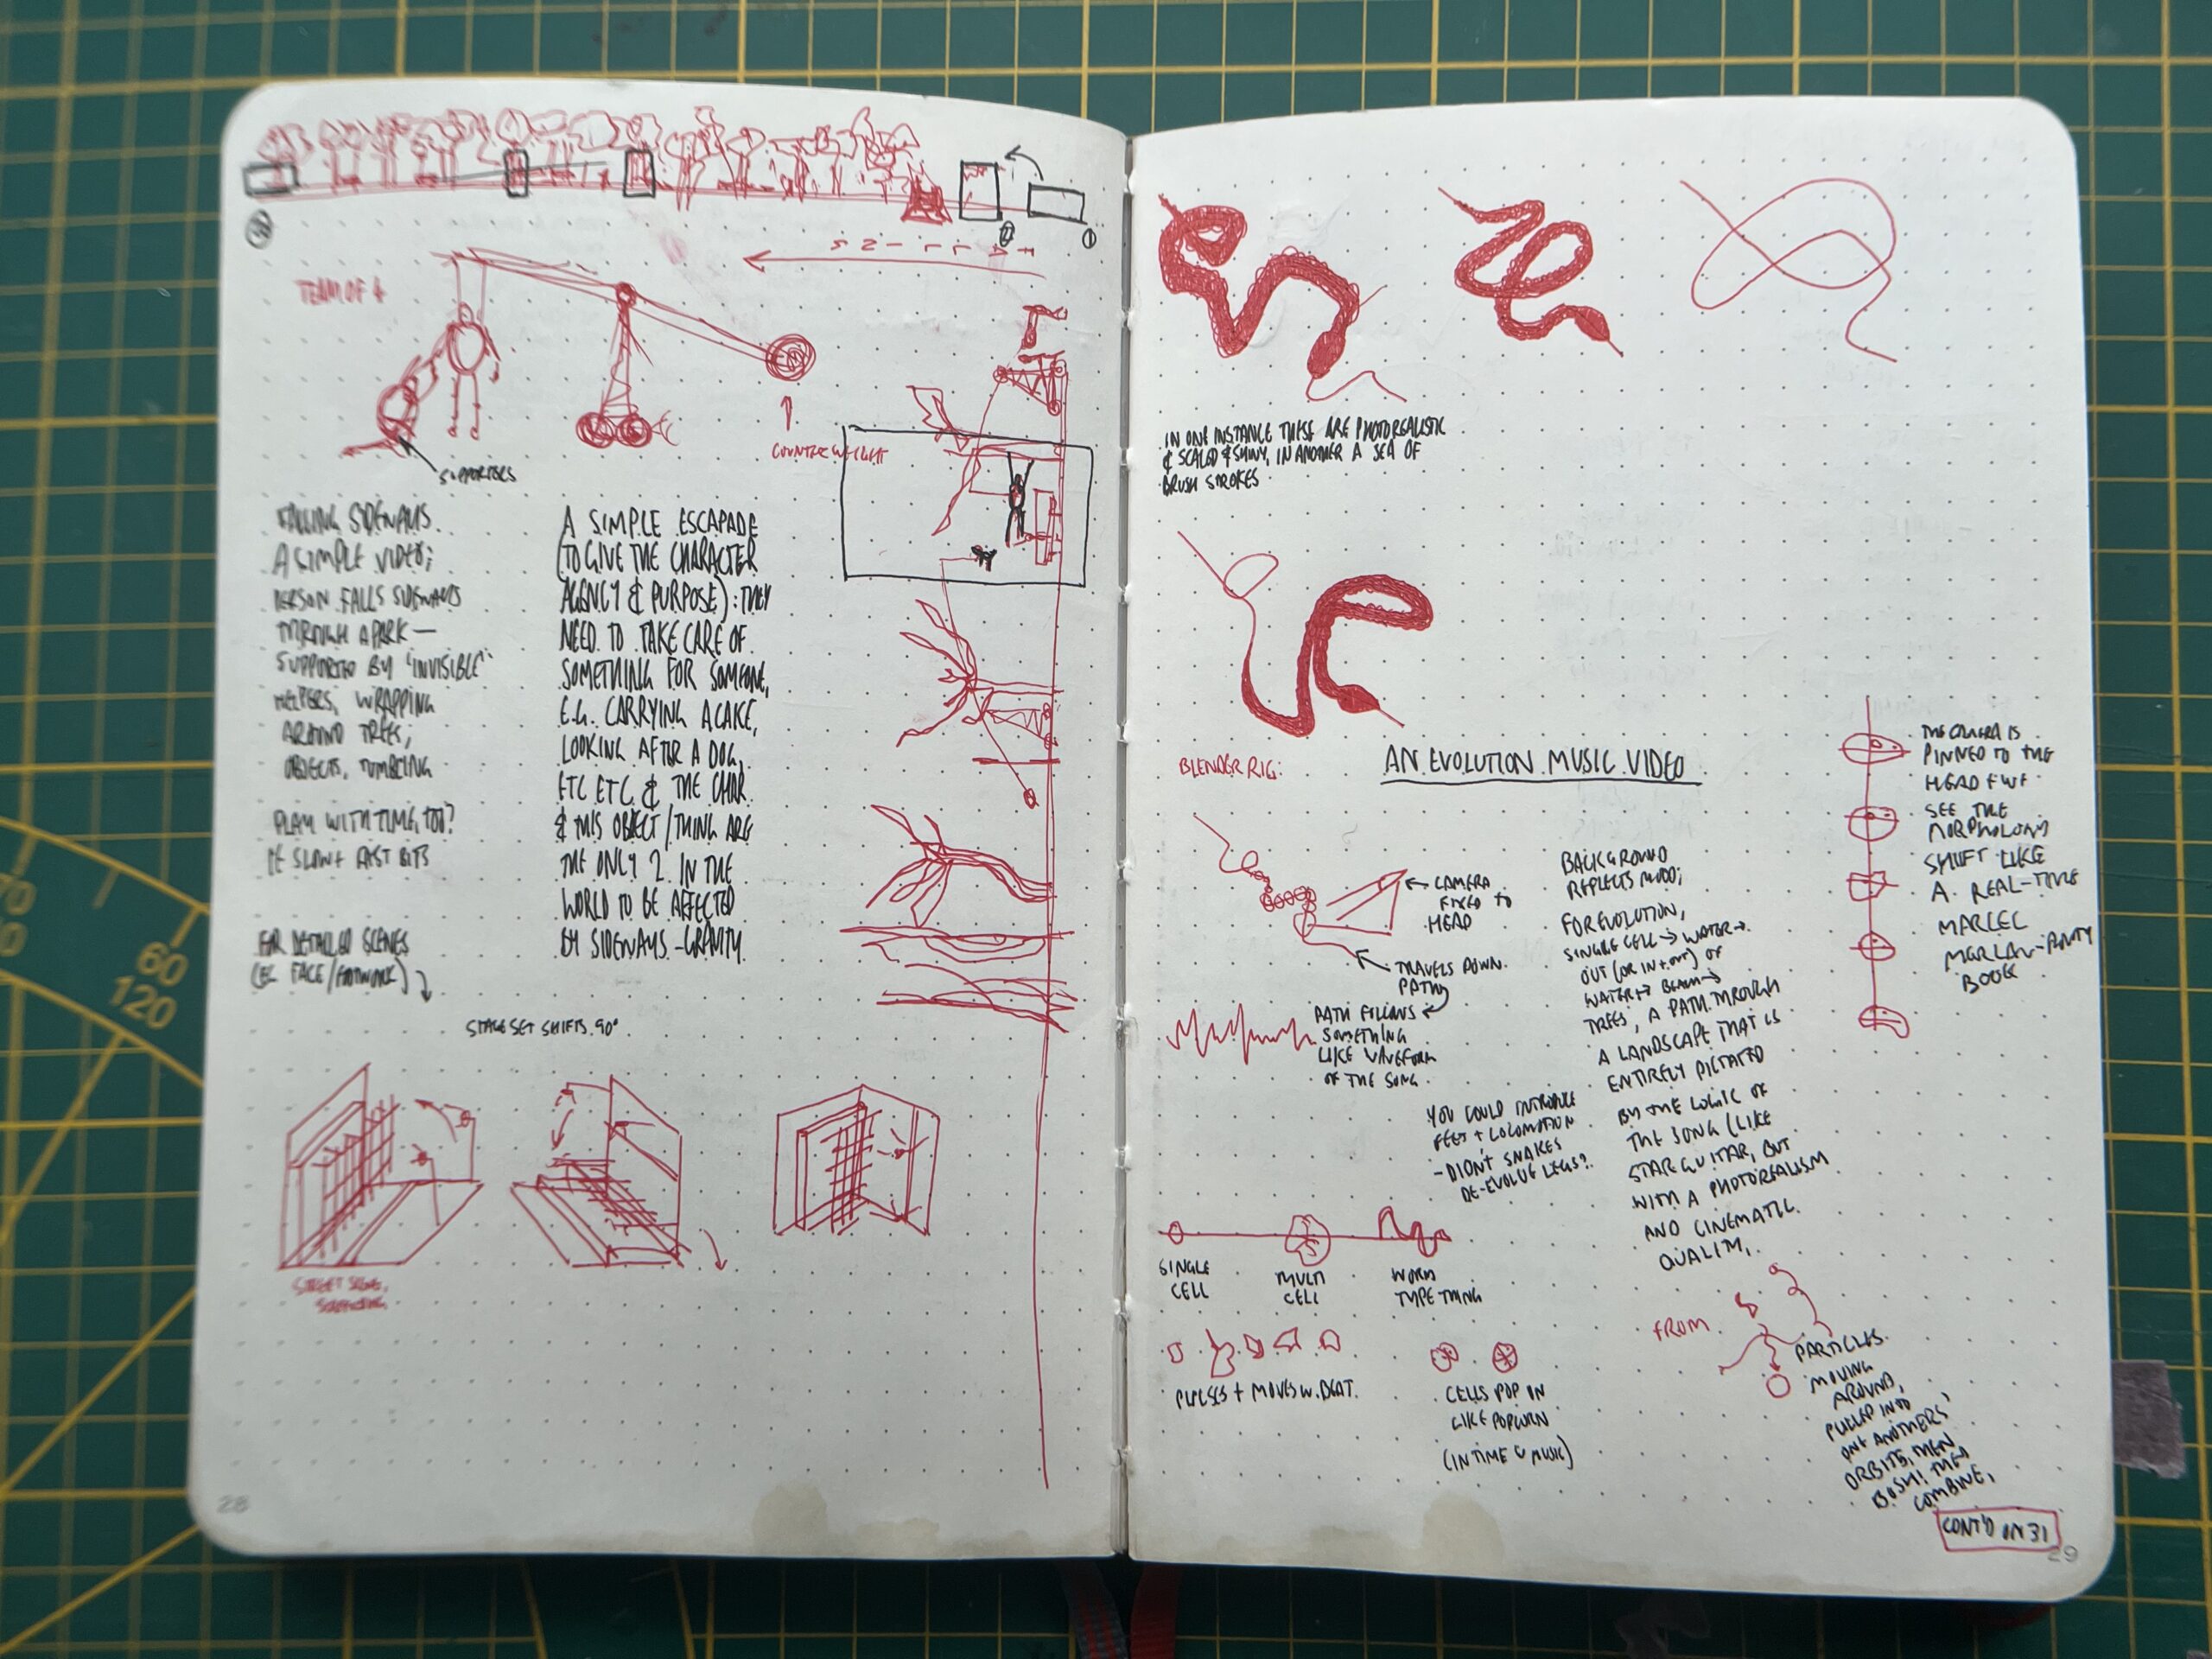 TEAM OF 4
COUNTERWEIGHT
SUPPORTERS
FALLING SIDEWAYS.
A SIMPLE VIDEO;
PERSON FALLS SIDEWAYS
THROUGH A PARK —
SUPPORTED BY 'INVISIBLE'
HELPERS, WRAPPING
AROUND TREES,
OBJECTS, TUMBLING
PLAY WITH TIME, TOO?
IE SLOW + FAST BITS
FOR DETAILED SCENES
(EG FACE/FOOTWORK)
A SIMPLE ESCAPADE
(TO GIVE THE CHARACTER
AGENCY & PURPOSE): THEY
NEED TO TAKE CARE OF
SOMETHING FOR SOMEONE,
E.G. CARRYING A CAKE,
LOOKING AFTER A DOG,
ETC ETC & THE CHAR.
& THIS OBJECT/THING ARE
THE ONLY 2 IN THE
WORLD TO BE AFFECTED
BY SIDEWAYS-GRAVITY.
STAGE SET SHIFTS 90°
28
IN ONE INSTANCE THESE ARE PHOTOREALISTIC
& SCALED & SHINY, IN ANOTHER A SEA OF
BRUSH STROKES.
BLENDER RIG.
AN EVOLUTION MUSIC VIDEO
CAMERA
FIXED TO
HEAD
TRAVELS DOWN
PATH
PATH FOLLOWS
SOMETHING
LIKE WAVEFORM
OF THE SONG.
BACKGROUND
REFLECTS MOOD;
FOR EVOLUTION,
SINGLE CELL → WATER →
OUT (OR IN + OUT) OF
WATER → BEACH →
TREES, A PATH THROUGH
A LANDSCAPE THAT IS
ENTIRELY DICTATED
BY THE LOGIC OF
THE SONG (LIKE
STAR GUITAR, BUT
WITH A PHOTOREALISM
AND CINEMATIC
QUALITY.
THE CAMERA IS
PINNED TO THE
HEAD & WE
SEE THE
MORPHOLOGY
SHIFT LIKE
A REAL-TIME
MARCEL
BOOK
YOU COULD INTRODUCE
FEET + LOCOMOTION
- DIDN'T SNAKES
DE-EVOLVE LEGS?
SINGLE
CELL
MULTI
CELL
WORM
TYPE THING
PULSES + MOVES W. BEAT.
CELLS POP IN
LIKE POPCORN
(IN TIME W MUSIC)
FROM
PARTICLES
MOVING
AROUND,
PULLED INTO
ONE ANOTHERS'
ORBITS, THEN
BOSH! THEY
COMBINE,
CONT'D ON 31
29
60
120